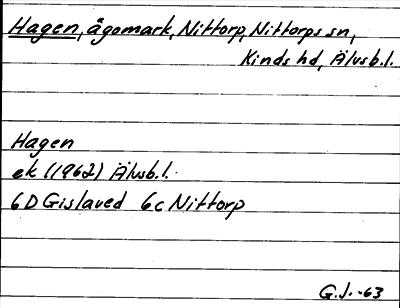 Hagen, ägomark, Nittorp, Nittorps sn,
Kinds hd, Älvsb.l.
Hagen
ek (1962) Älvsb.l.
6D Gislaved 6c Nittorp
G.J.-63